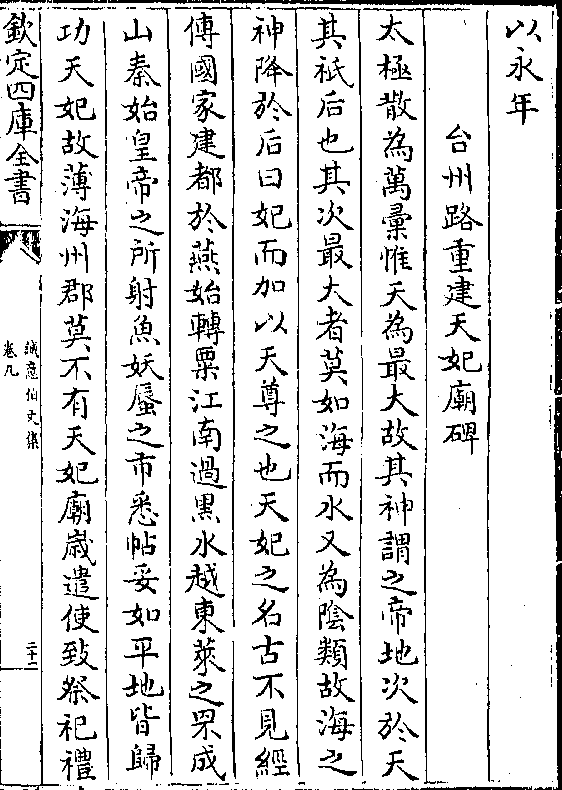 以永年
台州路重建天妃廟碑
太極散為萬彚惟天為最大故其神謂之帝地次於天
其祇后也其次最大者莫如海而水又為陰類故海之
神降於后曰妃而加以天尊之也天妃之名古不見經
傳國家建都於燕始轉粟江南過黒水越東萊之罘成
山秦始皇帝之所射魚妖蜃之市悉帖妥如平地皆歸
功天妃故薄海州郡莫不有天妃廟嵗遣使致祭祀禮
欽定四庫全書
誠意伯文集
卷九
二十二